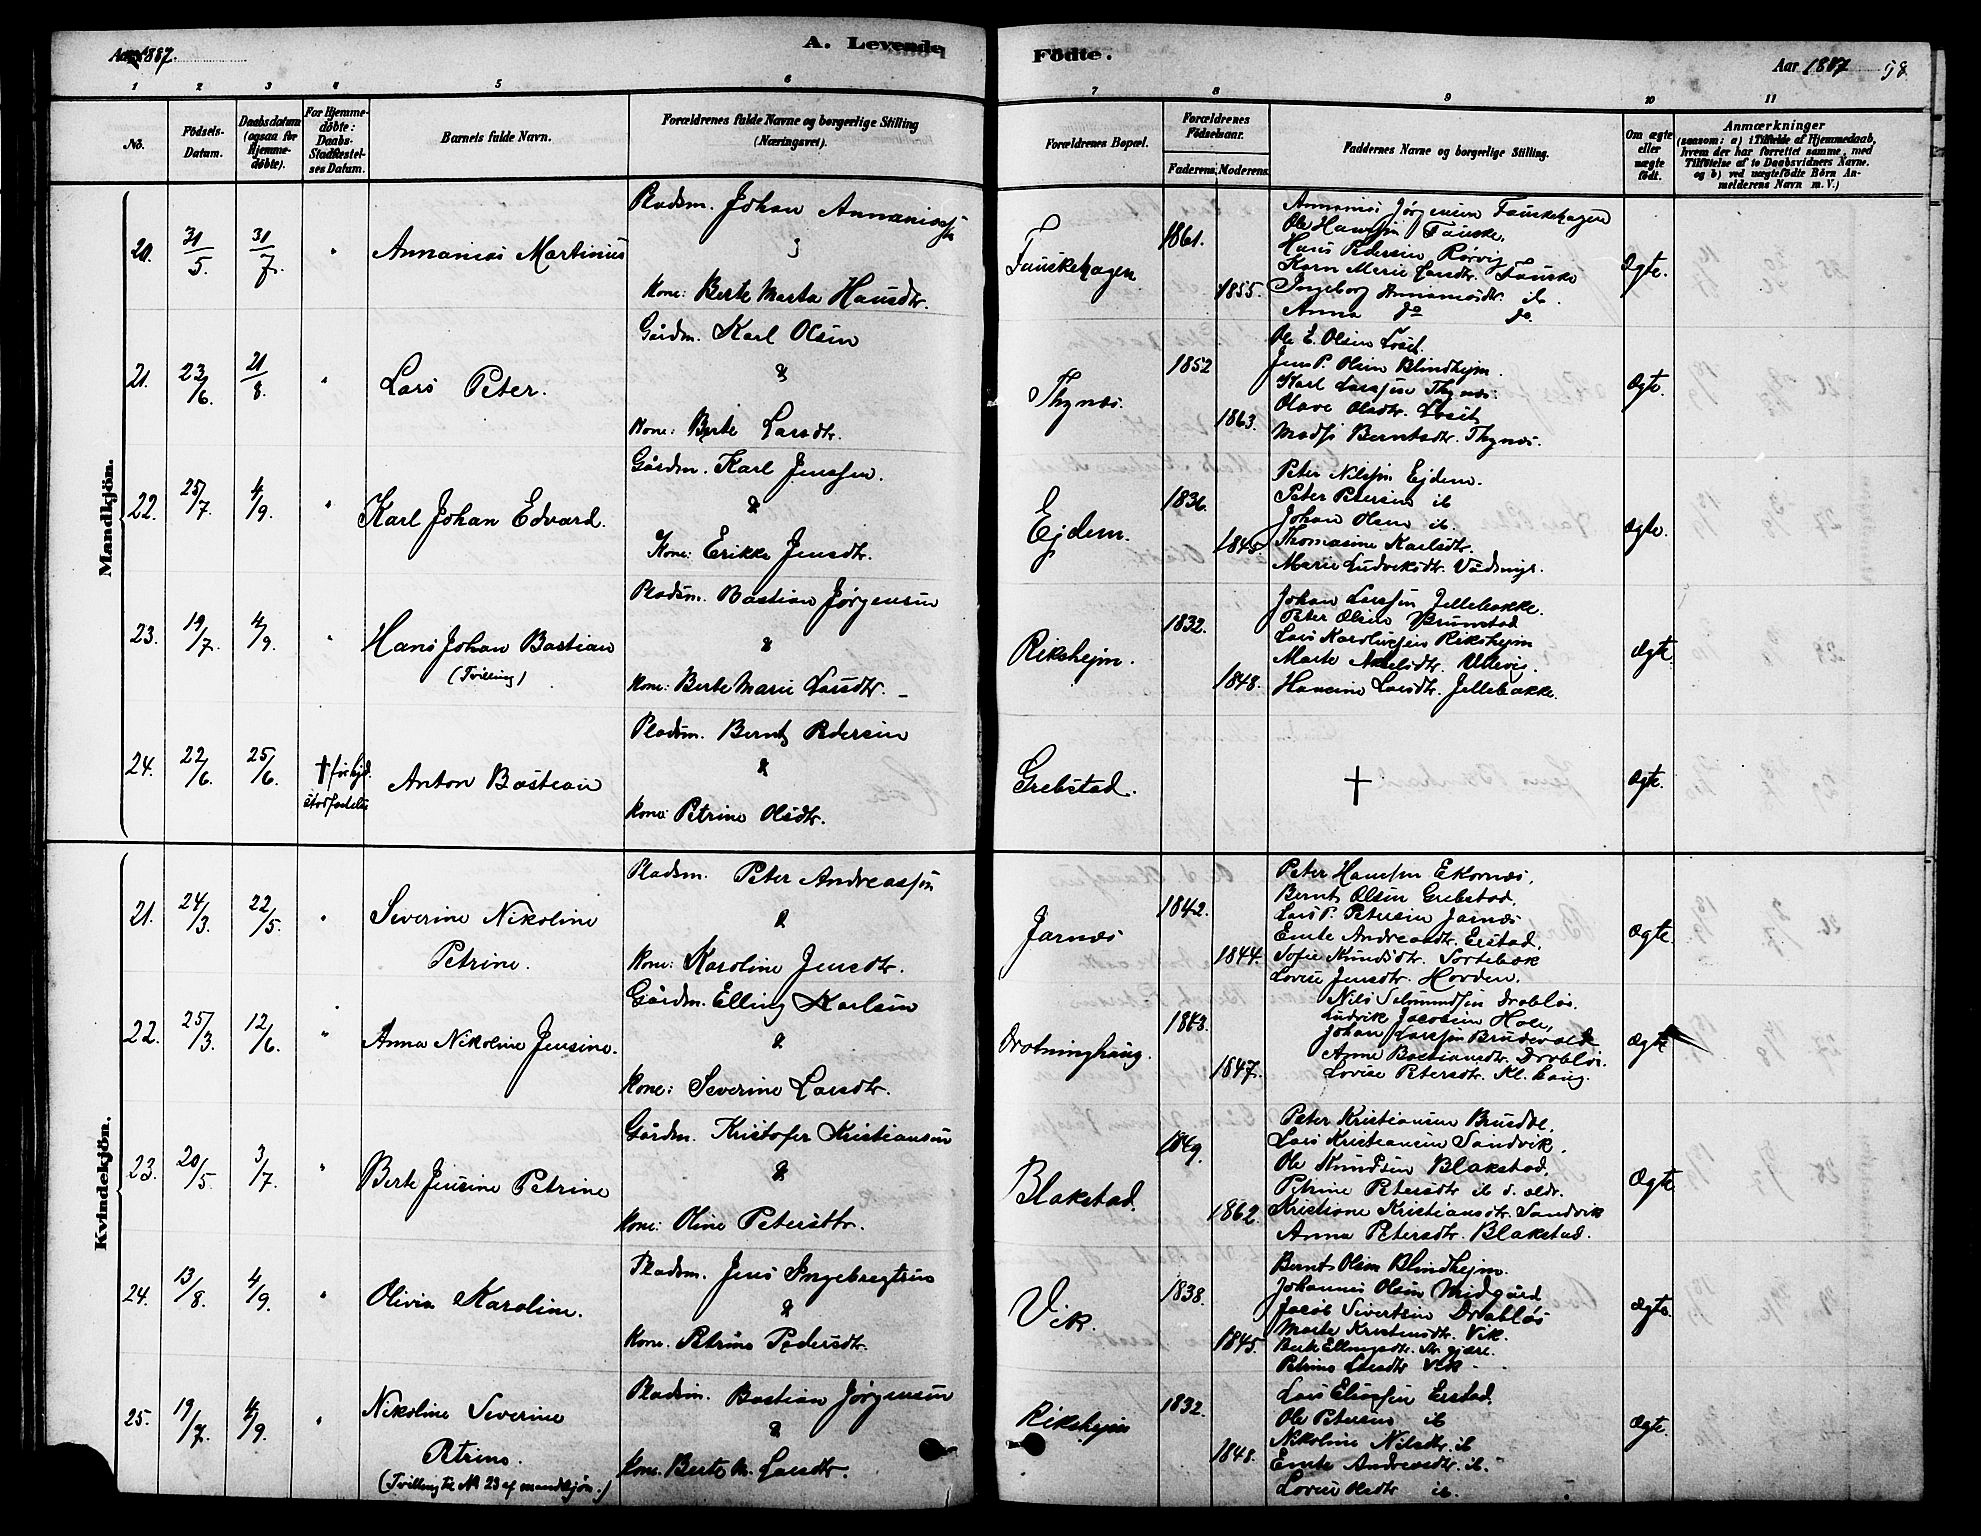 Aar 1887.
A. Levende
Födte.
Aar 1887
98
1 2 3 4 5 6 7 8 9 10 11
No.
Födsels-Datum.
Daabsdatum (ogsaa for Hjemme-döbte).
For Hjemme-döbte: Daabs-Stadfæstel-ses Datum.
Barnets fulde Navn.
Forældrenes fulde Navne og borgerlige Stilling (Næringsvei).
Forældrenes Bopæl.
Forældrenes Födselsaar.
Faderens. Moderens.
Faddernes Navne og borgerlige Stilling.
Om ægte eller uægte födt.
Anmærkninger
(saasom: a) i Tilfælde af Hjemmedaab, hvem der har forrettet samme, med Tilföielse af to Daabsvidners Navne. og b) ved uægtefödte Börn An-melderens Navn m. V.)
Mandkjön.
20. 31/5. 31/7. " Annanias Martinius
Pladsm. Johan Annaniass.
&
Kone: Berte Marta Hansdtr.
Fauskehagen 1861. 1855.
Annanias Jørgensen Fauskehagen
Ole Hanssen Fauske.
Hans Pedersen Rørvig
Karn Marie Larsdtr. Fauske
Ingeborg Annaniasdtr. ib.
Anna do do.
Ægte.
21. 23/6. 21/8. " Lars Peter.
Gårdm. Karl Olsen
&
Kone: Berte Larsdtr.
Thynæs. 1852 1863.
Ole E. Olsen Løset.
Jens P. Olsen Blindhejm.
Karl Larssen Thynæs.
Olave Olsdtr. Løset,
Madsi Berntsdtr. Thynæs.
Ægte.
22. 25/7. 4/9. " Karl Johan Edvard.
Gårdm. Karl Jenssen.
&
Kone: Erikke Jensdtr.
Ejdem. 1836. 1845.
Peter Nilssen Ejdem.
Peter Petersen ib
Johan Olsen ib.
Thomasine Karlsdtr.
Marie Ludviksdtr.
Ægte.
23. 19/7. 4/9. " Hans Johan Bastian
(Tvilling)
Pladsm. Bastian Jørgensen
&
Kone: Berte Marie Larsdtr.
Rikshejm. 1832. 1848.
Johan Larssen Jellebakke.
Peter Olsen Brunstad
Lars Karolussen Rikshejm
Marte Akselsdtr. Ullevig.
Hansine Larsdtr. Jellebakke.
Ægte.
24. 22/6. 25/6. † før hjd. stadfædelse
Anton Bastian
Pladsm. Bernt Pedersen
&
Kone: Petrine Olsdtr.
Grebstad. † Ægte.
Kvindekjön.
21. 24/3. 22/5. " Severine Nikoline
Petrine.
Pladsm. Peter Andreassen
&
Kone: Karoline Jensdtr.
Jarnæs 1842. 1844.
Peter Hanssen Ekornæs.
Bernt Olsen Grebstad.
Lars P. Petersen Jarnæs
Emte Andreasdtr. Erstad.
Sofie Knudsdtr. Sortebæk
Lovise Jensdtr. Hovden.
Ægte.
22. 25/3. 12/6. " Anna Nikoline Jensine.
Gårdm. Elling Karlsen
&
Kone: Severine Larsdtr.
Drotninghaug. 1843. 1847.
Nils Salmundsen Drabløs.
Ludvik Jacobsen Hole,
Johan Larssen Brudevolde
Anne Bastiansdtr. Drabløs.
Lovise Petersdtr. Kl. haug.
Ægte
23. 20/5. 3/7. " Berte Jensine Petrine
Gårdm. Kristofer Kristiansen
&
Kone: Oline Petersdtr.
Blakstad. 1849. 1862.
Peter Kristiansen Brusdal.
Lars Kristiansen Sandvik.
Ole Knudsen Blakstad.
Petrine Petersdtr ib d. ældr.
Kristiane Kristiansdtr. Sandvik
Anna Petersdtr. Blakstad.
Ægte.
24. 13/8. 4/9. " Olivia Karoline.
Pladsm. Jens Ingebregtsen
&
Kone: Petrine Pedersdtr.
Vik. 1838. 1845.
Bernt Olsen Blindhejm.
Johannes Olsen Midgård
Jacob Sivertsen Drabløs
Marte Kristensdtr. Vik.
Berte Ellingsdtr.
Petrine Larsdtr Vik
Ægte.
25. 19/7. 4/9. " Nikoline Severine
Petrine.
(Tvilling til No 23 af mandkjön.)
Pladsm. Bastian Jørgensen
&
Kone. Berte M. Larsdtr.
Rikshejm 1832. 1848.
Lars Eliassen Erstad.
Ole Petersen ib
Nikoline Nilsdtr. ib
Emte Andreasdtr. ib.
Lovise Olsdtr ib.
Ægte.